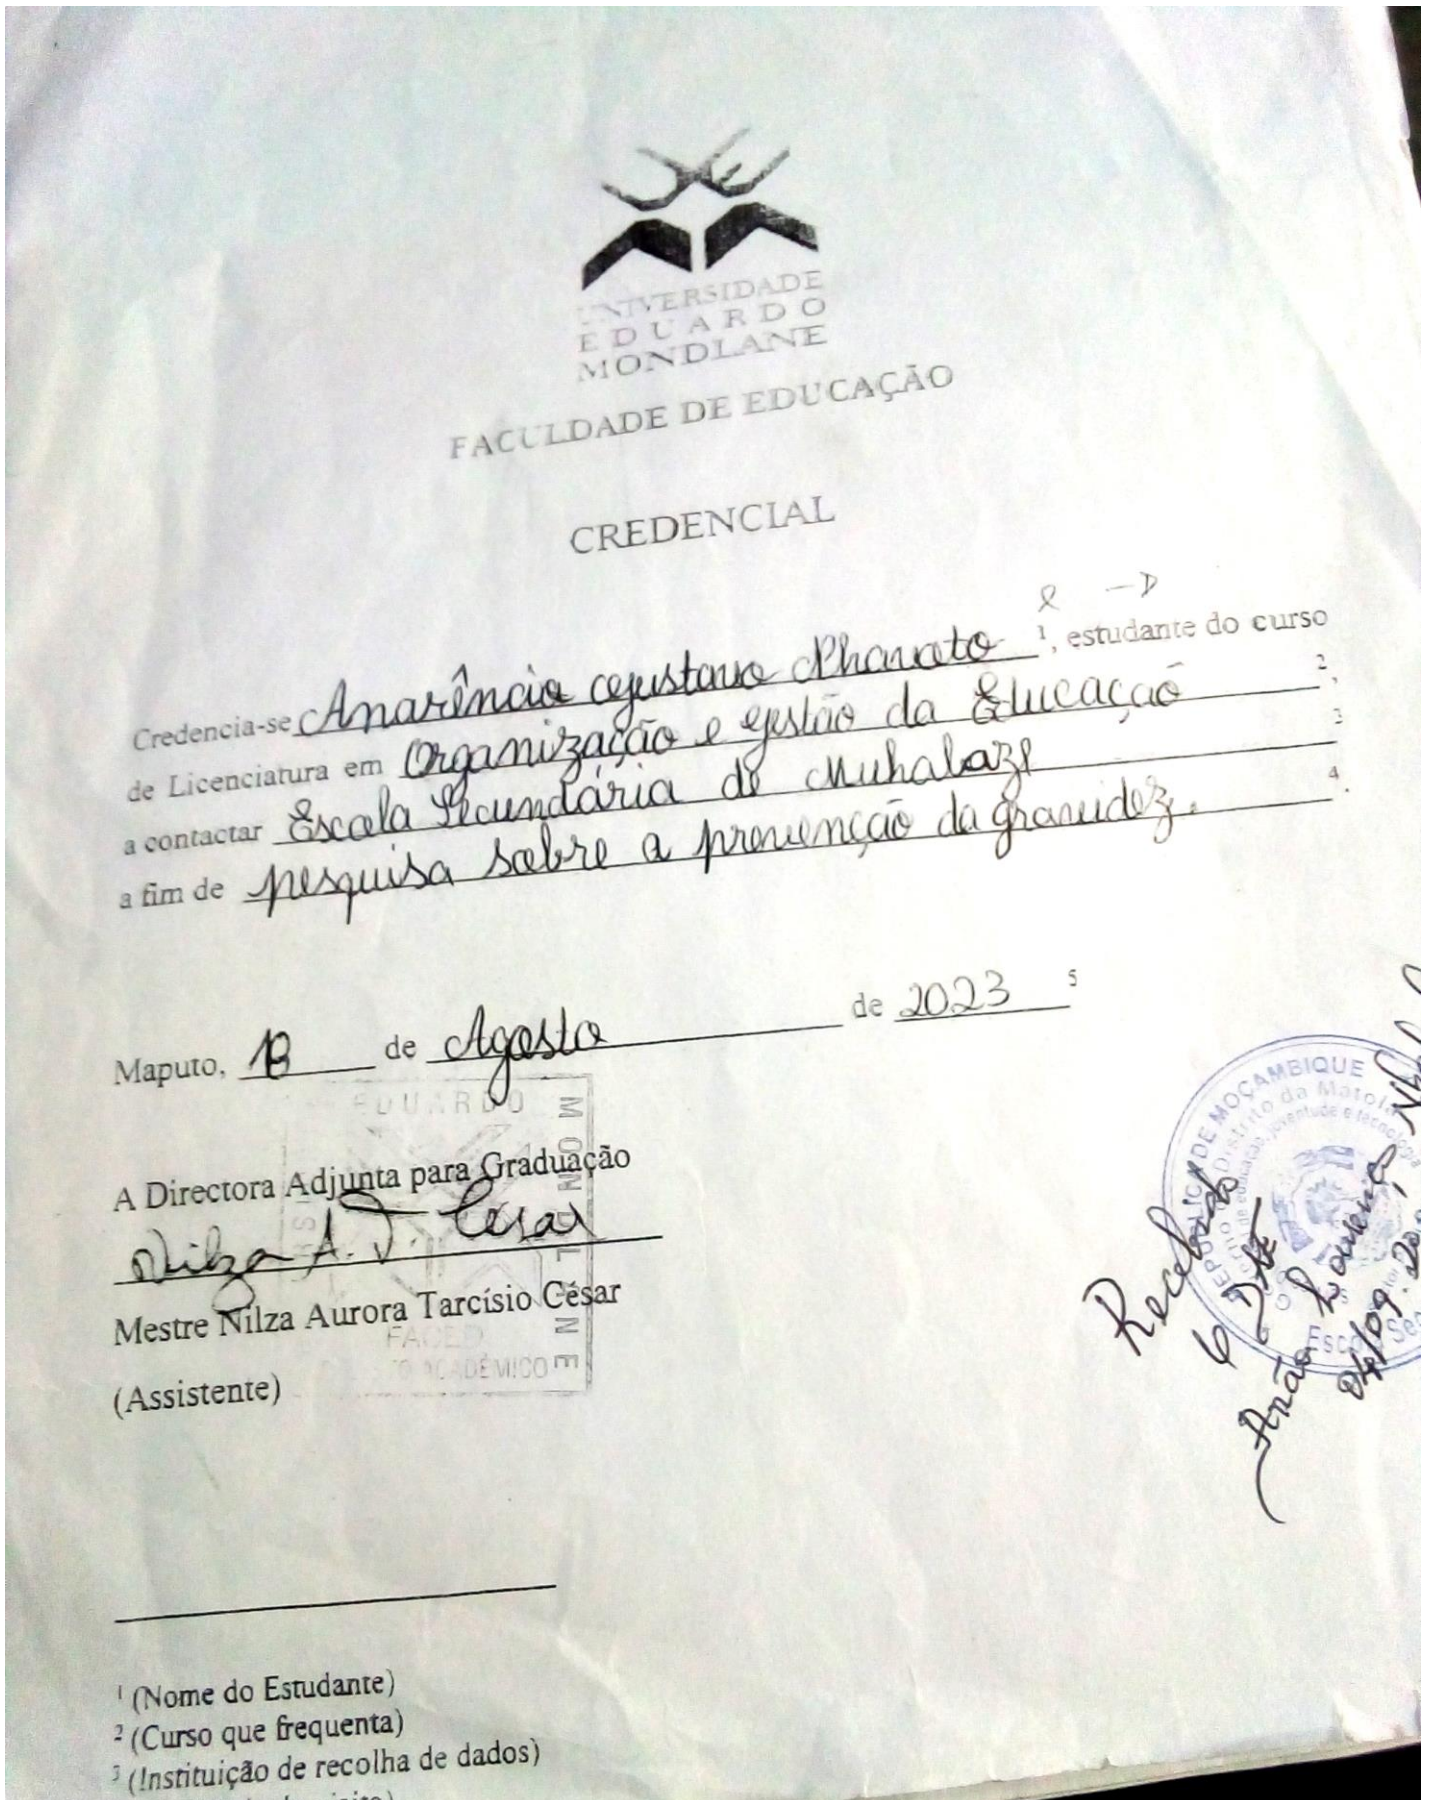 UNIVERSIDADE
EDUARDO
MONDLANE
FACULDADE DE EDUCAÇÃO
CREDENCIAL
Credencia-se Anarência Gustavo Nhavoto ¹, estudante do curso
de Licenciatura em Organização e gestão da Educação ²,
a contactar Escola Secundária de Muhalaze ³
a fim de pesquisa sobre a prevenção da gravidez. ⁴.
Maputo, de Agosto de 2023 ⁵
EDUARDO
MONDLANE
A Directora Adjunta para Graduação
Nilza A. T. César
Mestre Nilza Aurora Tarcísio César
FACED
ACADÉMICO
(Assistente)
REPÚBLICA DE MOÇAMBIQUE
Distrito da Matola
juventude e tecnologia
Recebido
Lourenço
04/09.
¹ (Nome do Estudante)
² (Curso que frequenta)
³ (Instituição de recolha de dados)